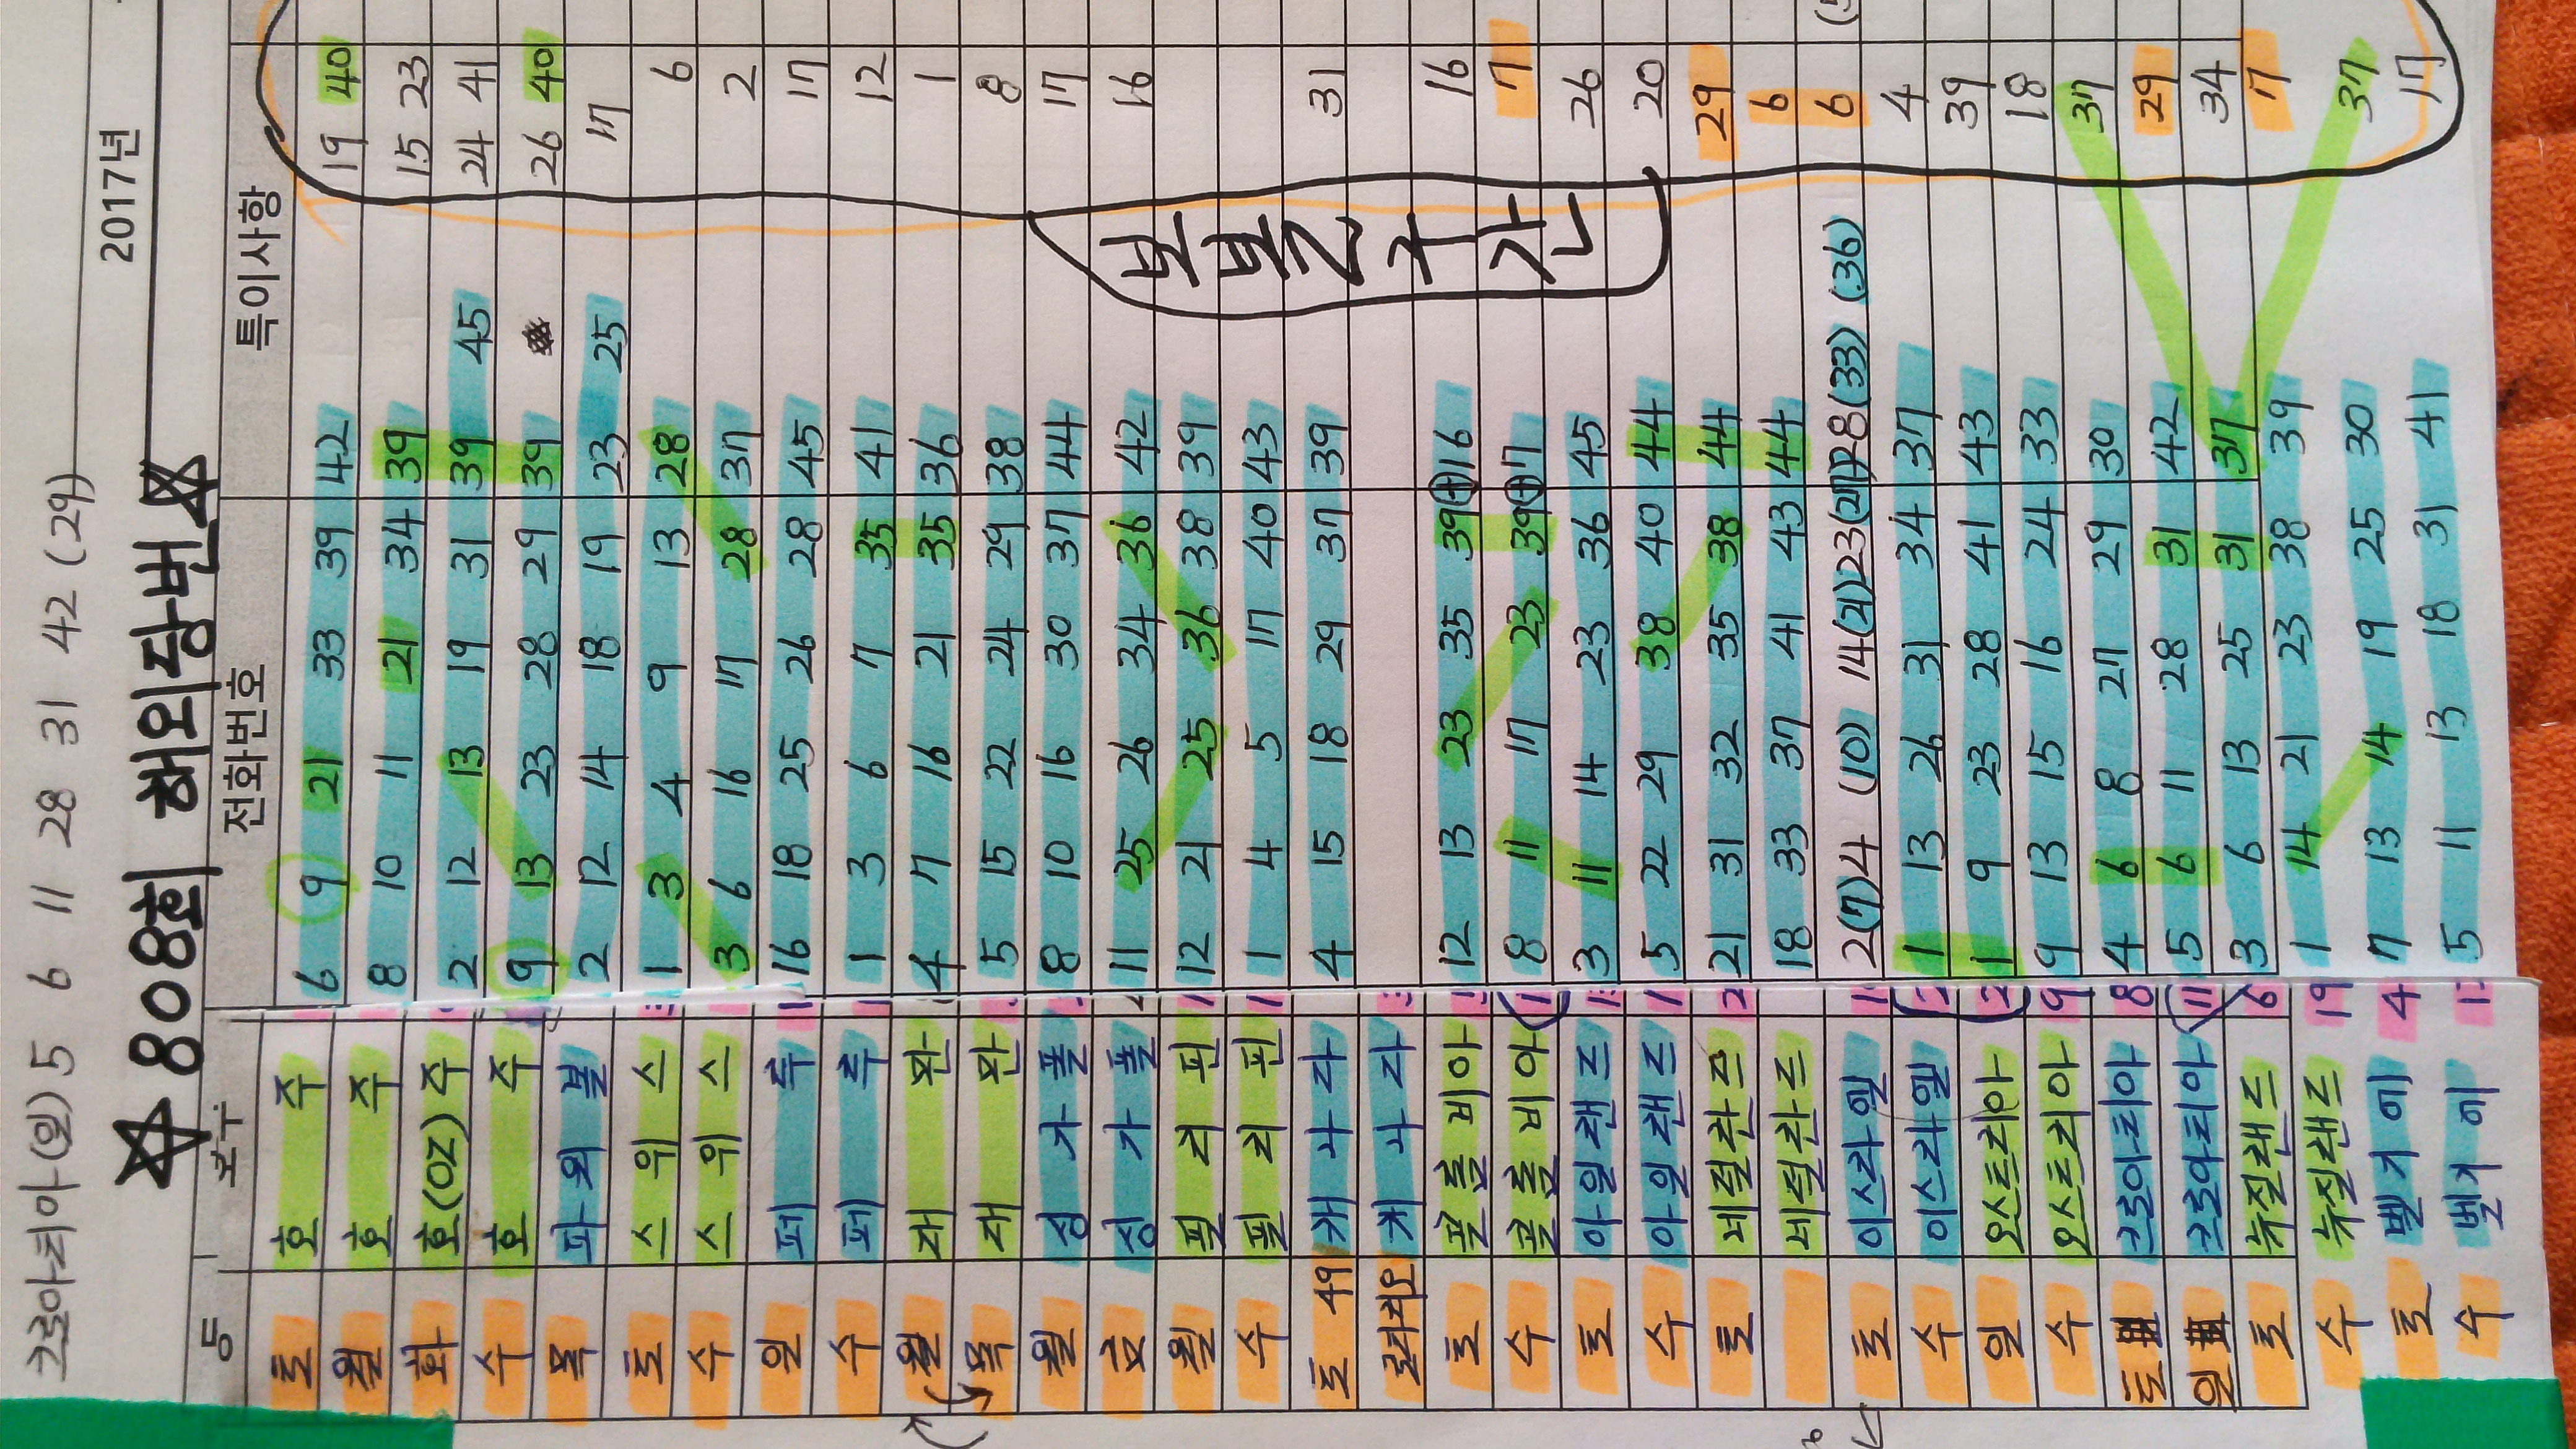 크로아티아(일) 5 6 11 28 31 42 (29)
2017년
☆ 808회 해외당번 ☆
동 호수 전화번호 특이사항
토 호 주 6 9 21 33 39 42 19 40
월 호 주 8 10 11 21 34 39 15 23
화 호(OZ) 주 2 12 13 19 31 39 45 24 41
수 호 주 9 13 23 28 29 39 26 40
목 파 워 볼 2 12 14 18 19 23 25 17
토 스 위 스 1 3 4 9 13 28 6
수 스 위 스 3 6 16 17 28 37 2
일 페 루 16 18 25 26 28 45 17
수 페 루 1 3 6 7 35 41 12
월 재 팬 4 7 16 21 35 36 1
목 재 팬 5 15 22 24 29 38 8
월 싱 가 폴 8 10 16 30 37 44 17
금 싱 가 폴 11 25 26 34 36 42 16
월 필 리 핀 12 21 25 36 38 39
수 필 리 핀 1 4 5 17 40 43
토 49 캐 나 다 4 15 18 29 37 39 31
캐 나 다
토 콜 롬 비 아 12 13 23 35 39 + 16 16
수 콜 롬 비 아 8 11 17 23 39 + 17 17
토 아 일 랜 드 3 11 14 23 36 45 26
수 아 일 랜 드 5 22 29 38 40 44 20
토 네 덜 란 드 21 31 32 35 38 44 29
네 덜 란 드 18 33 37 41 43 44 6
토 이스라엘 2 (7) 4 (10) 14 (21) 23 (27) 28 (33) (36) 6
수 이스라엘 1 13 26 31 34 37 4
일 오스트리아 1 9 23 28 41 43 39
수 오스트리아 9 13 15 16 24 33 18
토 크로아티아 4 6 8 27 29 30 37
일 크로아티아 5 6 11 28 31 42 29
토 뉴질랜드 3 6 13 25 31 37 34
수 뉴질랜드 1 14 21 23 38 39 17
토 벨 기 에 7 13 14 19 25 30 37
수 벨 기 에 5 11 13 18 31 41 17
보볼구간